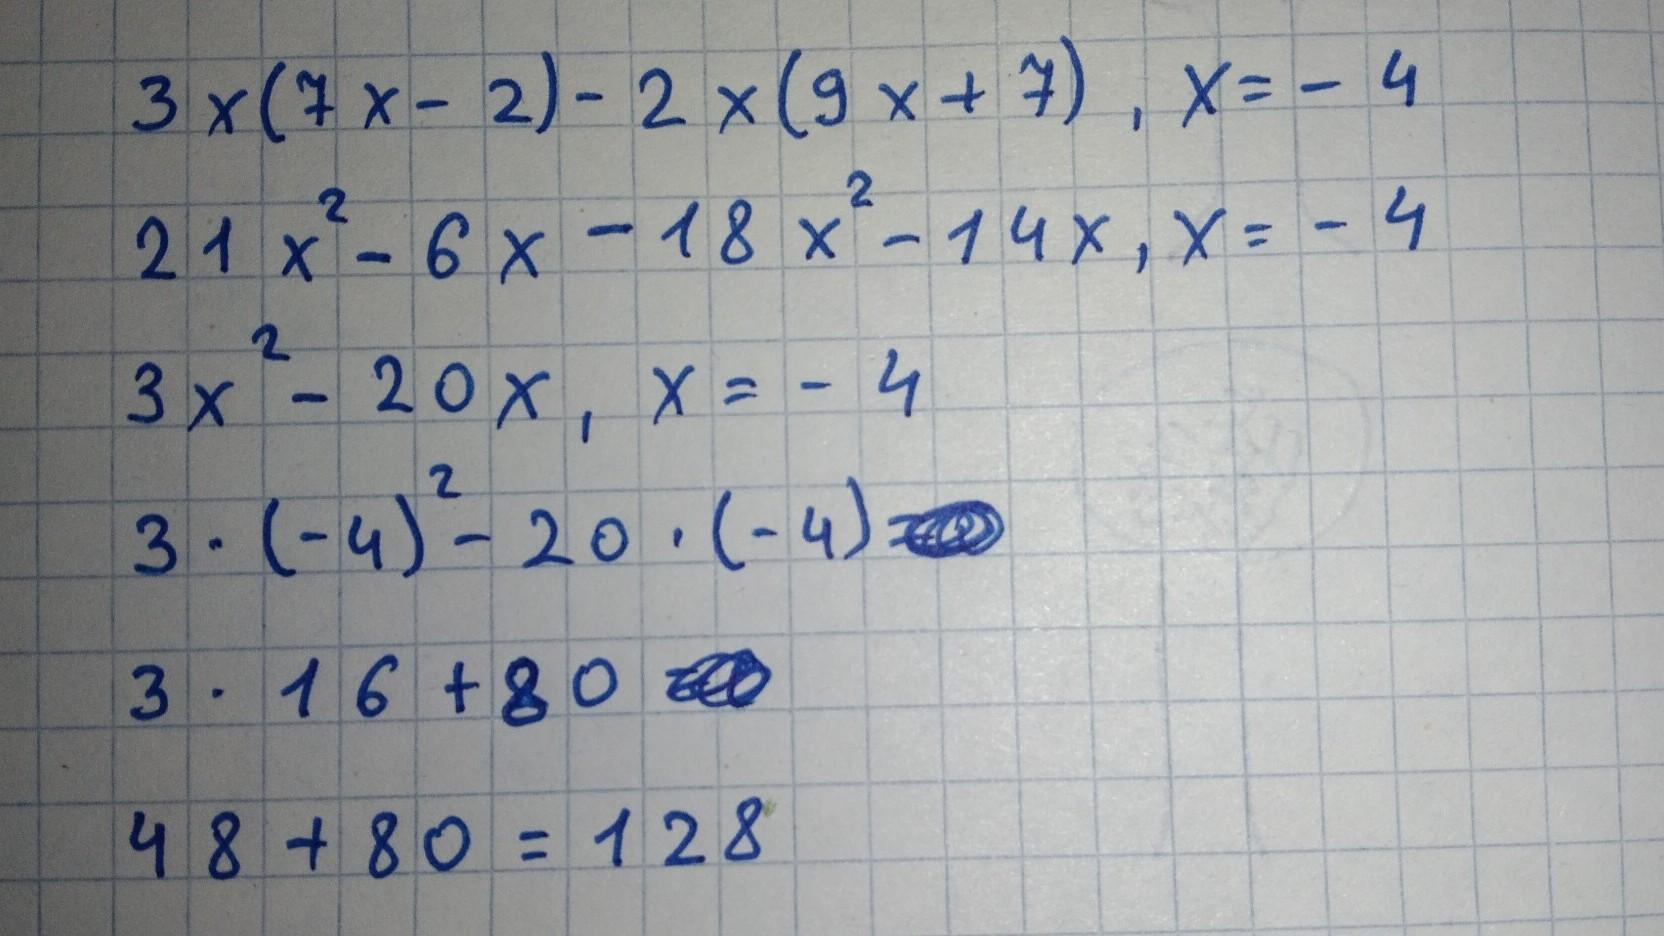 3x(7x-2)-2x(9x+7), x=-4
21x²-6x-18x²-14x, x=-4
3x²-20x, x=-4
3·(-4)²-20·(-4)
3·16+80
48+80=128